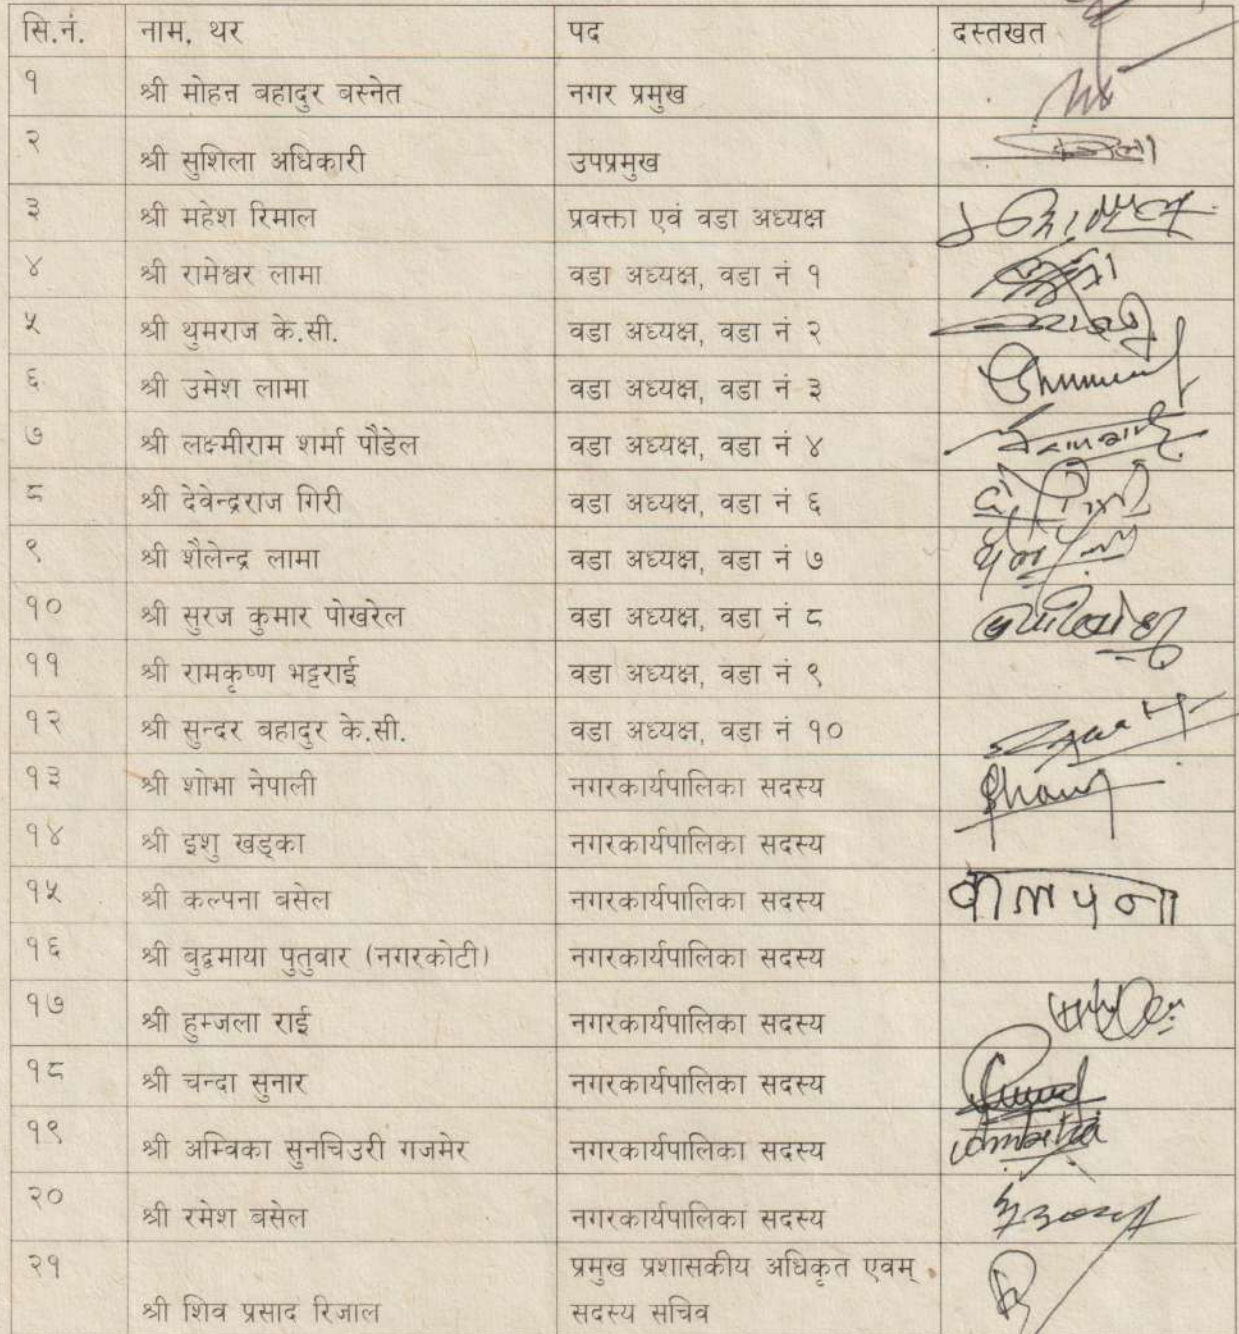 सि.नं. नाम, थर पद दस्तखत
१ श्री मोहन बहादुर बस्नेत नगर प्रमुख
२ श्री सुशिला अधिकारी उपप्रमुख
३ श्री महेश रिमाल प्रवक्ता एवं वडा अध्यक्ष
४ श्री रामेश्वर लामा वडा अध्यक्ष, वडा नं १
५ श्री थुमराज के.सी. वडा अध्यक्ष, वडा नं २
६ श्री उमेश लामा वडा अध्यक्ष, वडा नं ३
७ श्री लक्ष्मीराम शर्मा पौडेल वडा अध्यक्ष, वडा नं ४
८ श्री देवेन्द्रराज गिरी वडा अध्यक्ष, वडा नं ६
९ श्री शैलेन्द्र लामा वडा अध्यक्ष, वडा नं ७
१० श्री सुरज कुमार पोखरेल वडा अध्यक्ष, वडा नं ८
११ श्री रामकृष्ण भट्टराई वडा अध्यक्ष, वडा नं ९
१२ श्री सुन्दर बहादुर के.सी. वडा अध्यक्ष, वडा नं १०
१३ श्री शोभा नेपाली नगरकार्यपालिका सदस्य
१४ श्री इशु खड्का नगरकार्यपालिका सदस्य
१५ श्री कल्पना बसेल नगरकार्यपालिका सदस्य कल्पना
१६ श्री बुद्वमाया पुतुवार (नगरकोटी) नगरकार्यपालिका सदस्य
१७ श्री हुम्जला राई नगरकार्यपालिका सदस्य
१८ श्री चन्दा सुनार नगरकार्यपालिका सदस्य
१९ श्री अम्विका सुनचिउरी गजमेर नगरकार्यपालिका सदस्य
२० श्री रमेश बसेल नगरकार्यपालिका सदस्य
२१ प्रमुख प्रशासकीय अधिकृत एवम्
श्री शिव प्रसाद रिजाल सदस्य सचिव